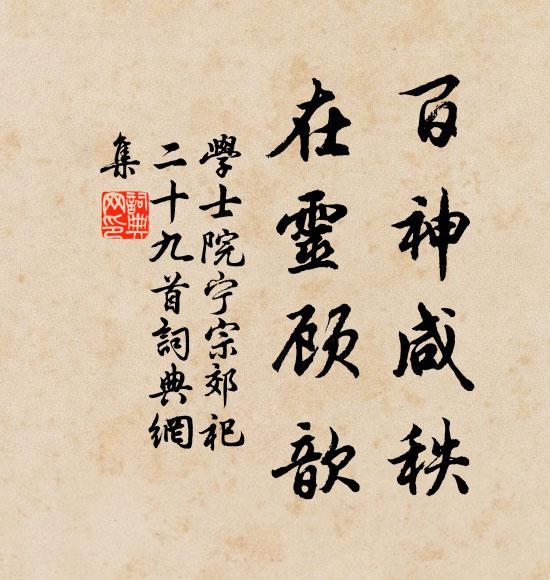 百神咸秩
在靈顾歆
學士院宁宗郊祀
二十九首詞典網
集
詞典网印